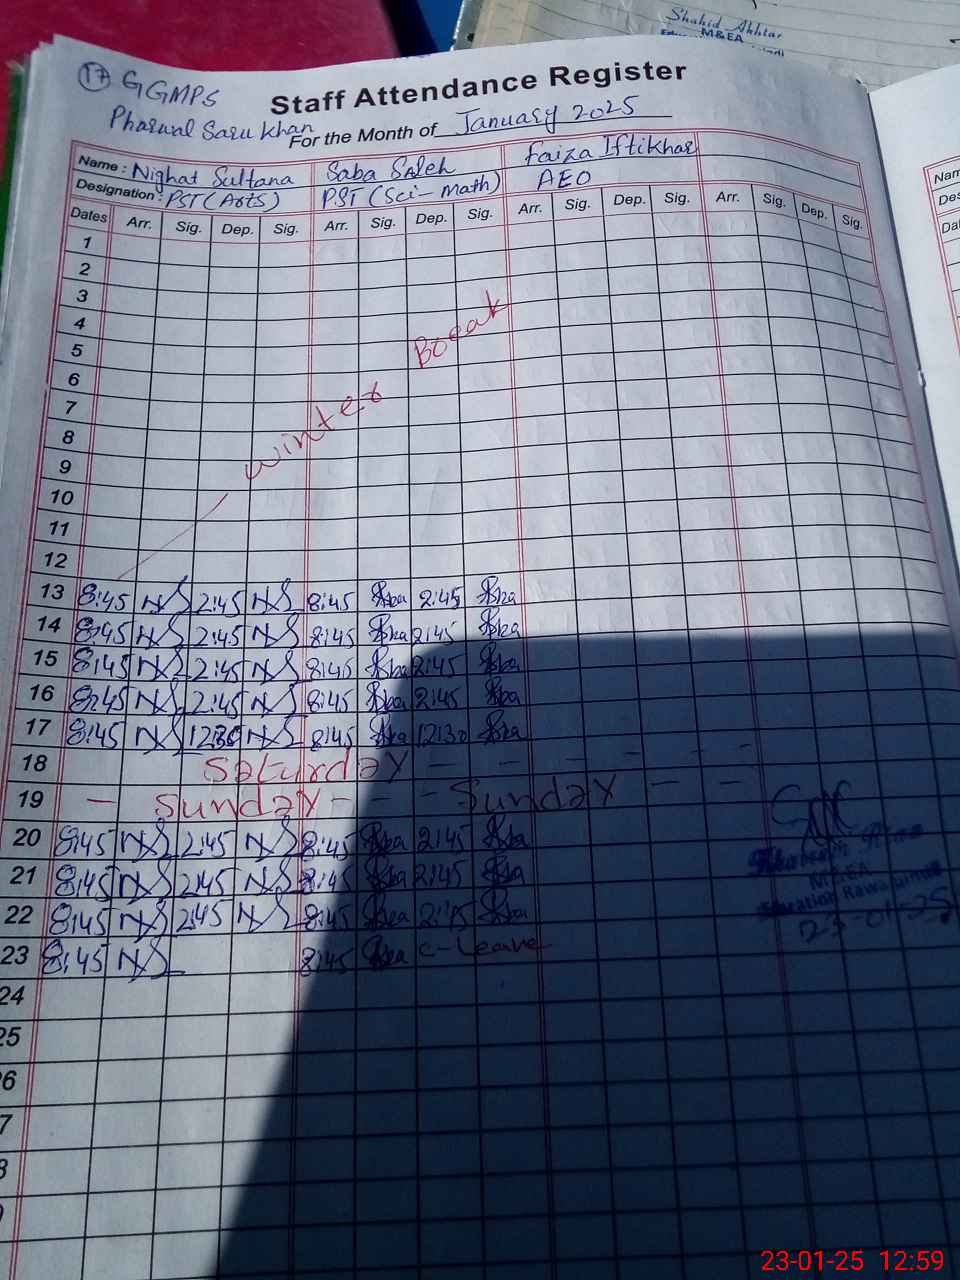 Shahid Akhtar
M&EA
17 GGMPS
Staff Attendance Register
Pharwal Saru Khan
For the Month of January 2025
Name: Nighat Sultana Saba Saleh Faiza Iftikhar
Designation: PST (Arts) PST (Sci-Math) AEO
Dates Arr. Sig. Dep. Sig. Arr. Sig. Dep. Sig. Arr. Sig. Dep. Sig. Arr. Sig. Dep. Sig.
1
2
3
4
5
6
7
8
9
10
11
12
Winter Break
13 8:45 NS 2:45 NS 8:45 Sba 2:45 Sba
14 8:45 NS 2:45 NS 8:45 Sba 2:45 Sba
15 8:45 NS 2:45 NS 8:45 Sba 2:45 Sba
16 8:45 NS 2:45 NS 8:45 Sba 2:45 Sba
17 8:45 NS 12:30 NS 8:45 Sba 12:30 Sba
18 Saturday
19 Sunday Sunday
20 8:45 NS 2:45 NS 8:45 Sba 2:45 Sba
21 8:45 NS 2:45 NS 8:45 Sba 2:45 Sba
22 8:45 NS 2:45 NS 8:45 Sba 2:45 Sba
23 8:45 NS 8:45 Sba C-Leave
M&EA
23-01-25
24
25
6
7
8
Nam
Des
Dat
23-01-25 12:59